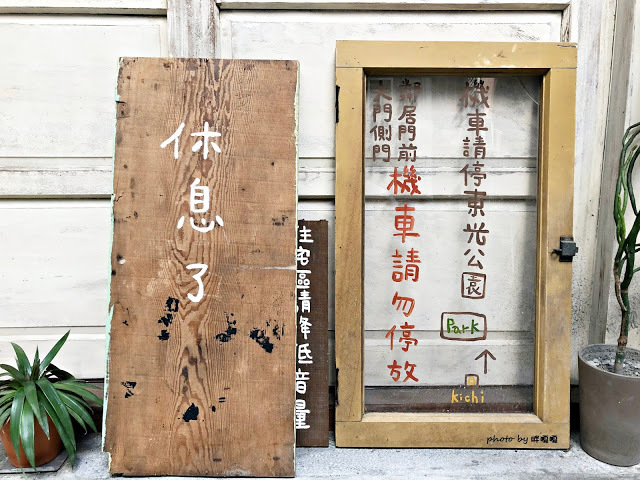 休息了
住宅區請降低音量
機車請停東光公園
Park
kichi
鄰居門前
大門側門
機車請勿停放
photo by